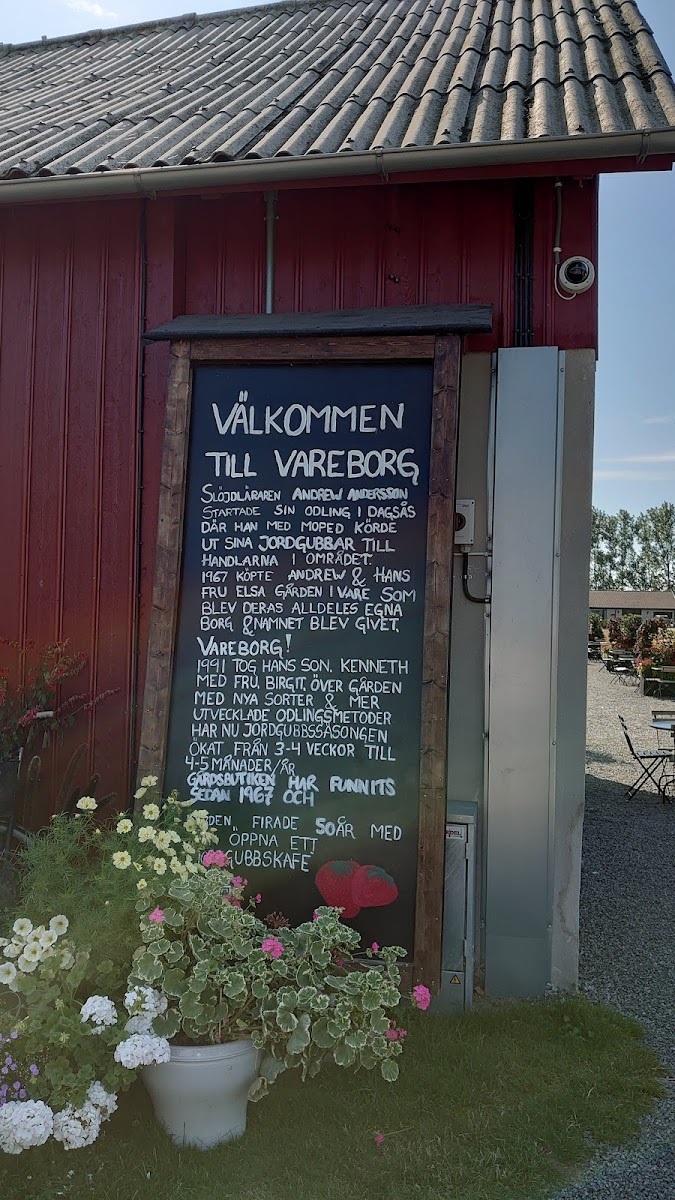 VÄLKOMMEN
TILL VAREBORG
SLÖJDLÄRAREN ANDREW ANDERSSON
STARTADE SIN ODLING I DAGSÅS
DÄR HAN MED MOPED KÖRDE
UT SINA JORDGUBBAR TILL
HANDLARNA I OMRÅDET.
1967 KÖPTE ANDREW & HANS
FRU ELSA GÅRDEN I VARE SOM
BLEV DERAS ALLDELES EGNA
BORG & NAMNET BLEV GIVET,
VAREBORG!
1991 TOG HANS SON, KENNETH
MED FRU, BIRGIT, ÖVER GÅRDEN
MED NYA SORTER & MER
UTVECKLADE ODLINGSMETODER
HAR NU JORDGUBBSSÄSONGEN
ÖKAT FRÅN 3-4 VECKOR TILL
4-5 MÅNADER/ÅR
GÅRDSBUTIKEN HAR FUNNITS
SEDAN 1967 OCH
DEN FIRADE 50ÅR MED
ÖPPNA ETT
GUBBSKAFE